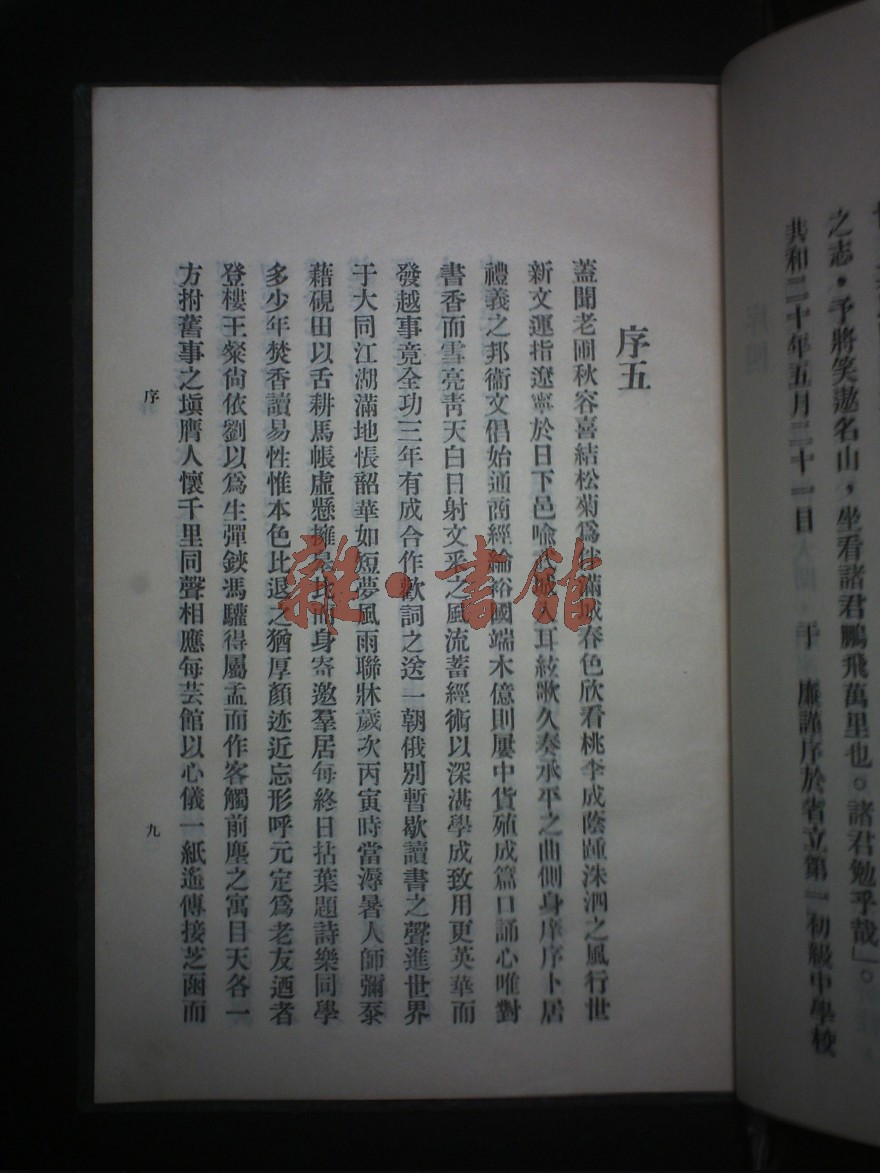 之志。予將笑遨名山，坐看諸君鵬飛萬里也。諸君勉乎哉」。
共和二十年五月二十一日 于 廉謹序於省立第一初級中學校
序五
蓋聞老圃秋容喜結松菊爲滿城春色欣看桃李成蔭踵洙泗之風行世
新文運指遼寧於日下邑喻武城入耳絃歌久奏承平之曲側身庠序卜居
禮義之邦衞文倡始通商經綸裕國端木億則屢中貨殖成篇口誦心唯對
書香而雪亮靑天白日射文釆之風流蓄經術以深湛學成致用更英華而
發越事竟全功三年有成合作歡詞之送一朝俄別暫歇讀書之聲進世界
于大同江湖滿地悵韶華如短夢風雨聯牀歲次丙寅時當溽暑人師彌忝
藉硯田以舌耕馬帳虛懸擁比而身寄邀羣居每終日拈葉題詩樂同學
多少年焚香讀易性惟本色比退之猶厚顏迹近忘形呼元定爲老友迺者
登樓王粲尙依劉以爲生彈鋏馮驩得屬孟而作客觸前塵之寓目天各一
方拊舊事之塡膺人懷千里同聲相應每芸館以心儀一紙遙傳接芝函而
序
九
雜·書館